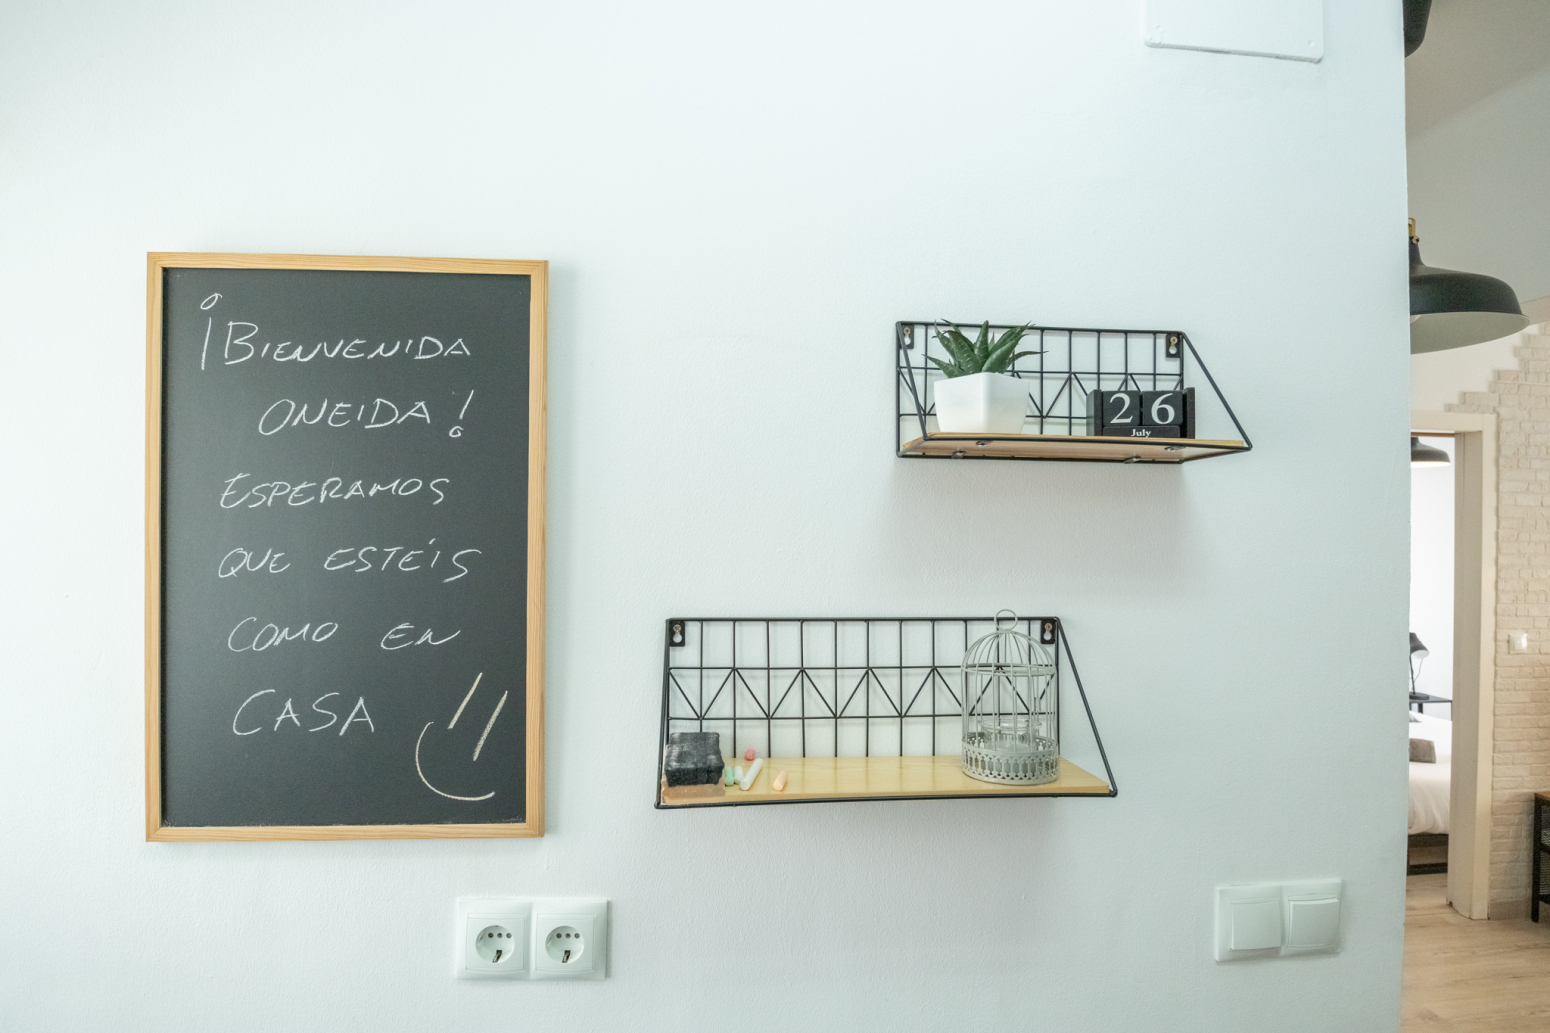 ¡BIENVENIDA
ONEIDA!
ESPERAMOS
QUE ESTÉIS
COMO EN
CASA
26
July